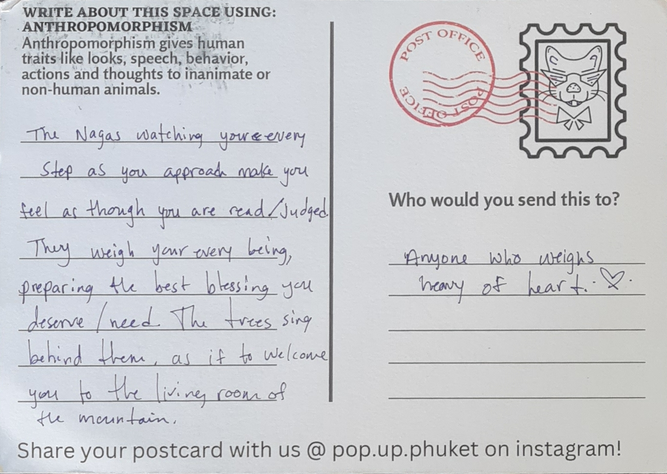 WRITE ABOUT THIS SPACE USING:
ANTHROPOMORPHISM
Anthropomorphism gives human
traits like looks, speech, behavior,
actions and thoughts to inanimate or
non-human animals.
The Nagas watching your every
step as you approach make you
feel as though you are read/judged.
They weigh your every being,
preparing the best blessing you
deserve/need. The trees sing
behind them, as if to welcome
you to the living room of
the mountain.
POST OFFICE
POST OFFICE
Who would you send this to?
Anyone who weighs
heavy of heart.
Share your postcard with us @ pop.up.phuket on instagram!